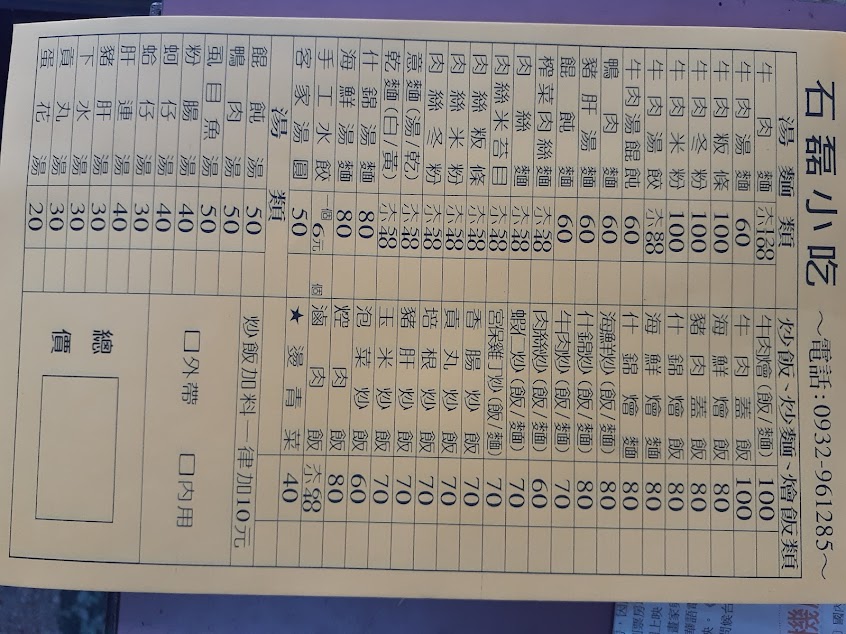 石磊小吃 ～電話:0932-961285～
湯麵類
牛肉麵 大128 小108
牛肉湯麵 60
牛肉粄條 100
牛肉冬粉 100
牛肉米粉 100
牛肉湯餃 大88
牛肉湯餛飩 60
鴨肉麵 60
豬肝湯麵 60
餛飩麵 60
榨菜肉絲麵 大58 小48
肉絲麵 大58 小48
肉絲米苔目 大58 小48
肉絲粄條 大58 小48
肉絲米粉 大58 小48
肉絲冬粉 大58 小48
意麵(湯/乾) 大58 小48
乾麵(白/黃) 大58 小48
什錦湯麵 80
海鮮湯麵 80
手工水餃 一個6元 個
客家湯圓 50
湯類
餛飩湯 50
鴨肉湯 50
虱目魚湯 50
粉腸湯 40
蚵仔湯 40
蛤仔湯 30
肝連湯 40
豬肝湯 30
下水湯 30
貢丸湯 30
蛋花湯 20
炒飯、炒麵、燴飯類
牛肉燴(飯/麵) 100
牛肉蓋飯 100
海鮮燴飯 80
豬肉蓋飯 80
什錦燴飯 80
海鮮燴麵 80
什錦燴麵 80
海鮮炒(飯/麵) 80
什錦炒(飯/麵) 80
牛肉炒(飯/麵) 70
肉絲炒(飯/麵) 60
蝦仁炒(飯/麵) 70
宮保雞丁炒(飯/麵) 70
香腸炒飯 70
貢丸炒飯 70
培根炒飯 70
豬肝炒飯 70
玉米炒飯 70
泡菜炒飯 60
焢肉飯 80
滷肉飯 大68 小48
★燙青菜 40
炒飯加料一律加10元
□外帶 □內用
總價